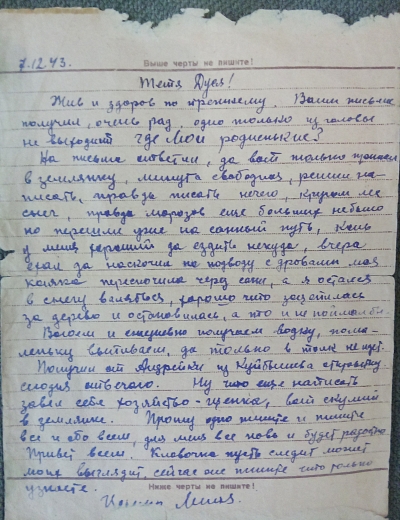 7.12.43.
Выше черты не пишите!
Тетя Дуся!
Жив и здоров по прежнему. Ваши письма
получил, очень рад, одно только из головы
не выходит где мои родненькие?
На письма ответил, да вот только приехал
в землянку, минута свободная, решил на-
писать, правда писать нечего, кругом лес
снег, правда морозов еще больших небыло
но перешли уже на санный путь, конь
у меня хороший да ездить некуда, вчера
ехал да наскочил на подводу с дровами, моя
коляка перескочила через сани, а я остался
в снегу валяться, хорошо что зацепилась
за дерево и остановилась, а то и не поймал бы.
ежедневно получаем водку, пома-
леньку выпиваем, да только в толк не идет.
Получил от Андрейки из Куйбышева открытку
сегодня отвечаю. Ну что еще написать
завел себе хозяйство - щенка, вот скулит
в землянке. Прошу одно пишите и пишите
все и обо всем, для меня все новь и будет радостно
Привет всем. Клавочка пусть следит может
мои выглядят сейчас они пишите что только
узнаете.
Ниже черты не пишите!